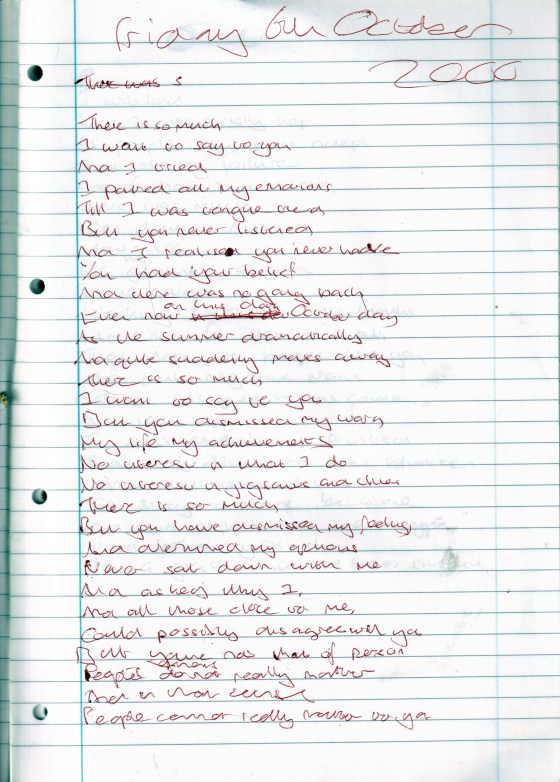 Friday 6th October
2000
There was s
There is so much
I want to say to you
And I tried
I pained all my emotions
Till I was tongue tied
But you never listened
And I realised you never have
You had your belief
And there was no going back
Even now on this day October day
As the summer dramatically
And quite suddenly moves away
There is so much
I want to say to you
But you dismissed my words
My life my achievements
No interest in what I do
No interest in jigsaws and clues
There is so much
But you have dismissed my feelings
And determined my opinions
Never sat down with me
And asked why I,
And all those close to me,
Could possibly disagree with you
But you're not that of person
People's opinions do not really matter
And in that sense
People cannot really matter to you